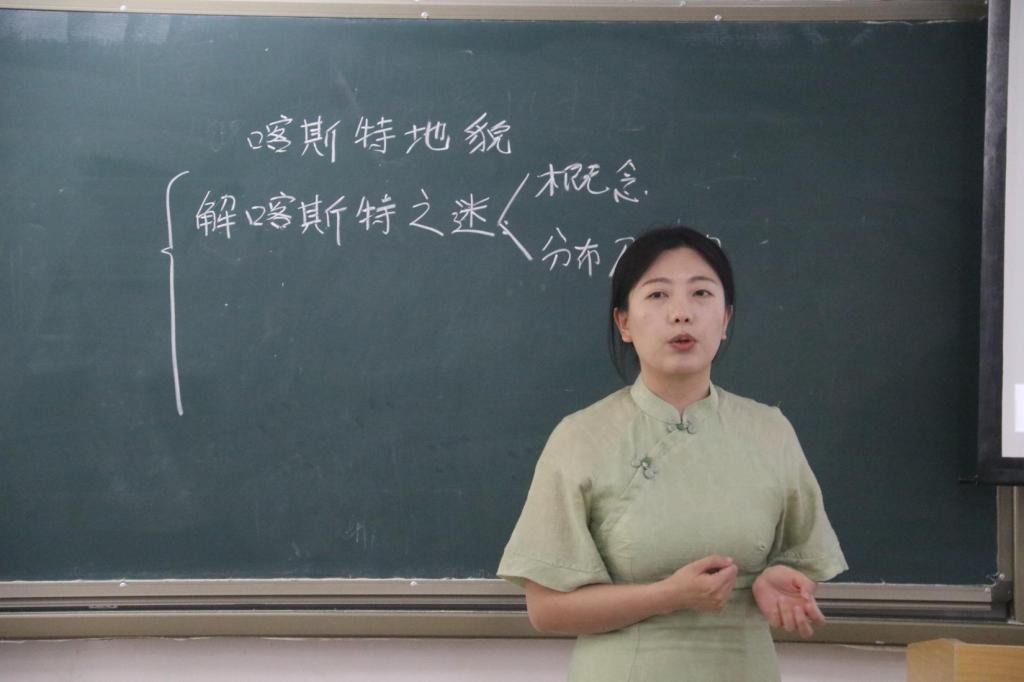 喀斯特地貌
解喀斯特之迷
概念
分布